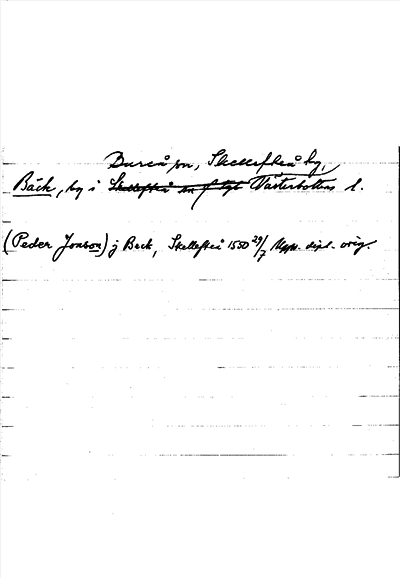 Bureå sn, Skellefteå kg,
Bäck, by i Skellefteå sn o tgl Västerbottens l.
(Peder Jonson) j Beck, Skellefteå 1550 29/7 Upps. dipl. orig.